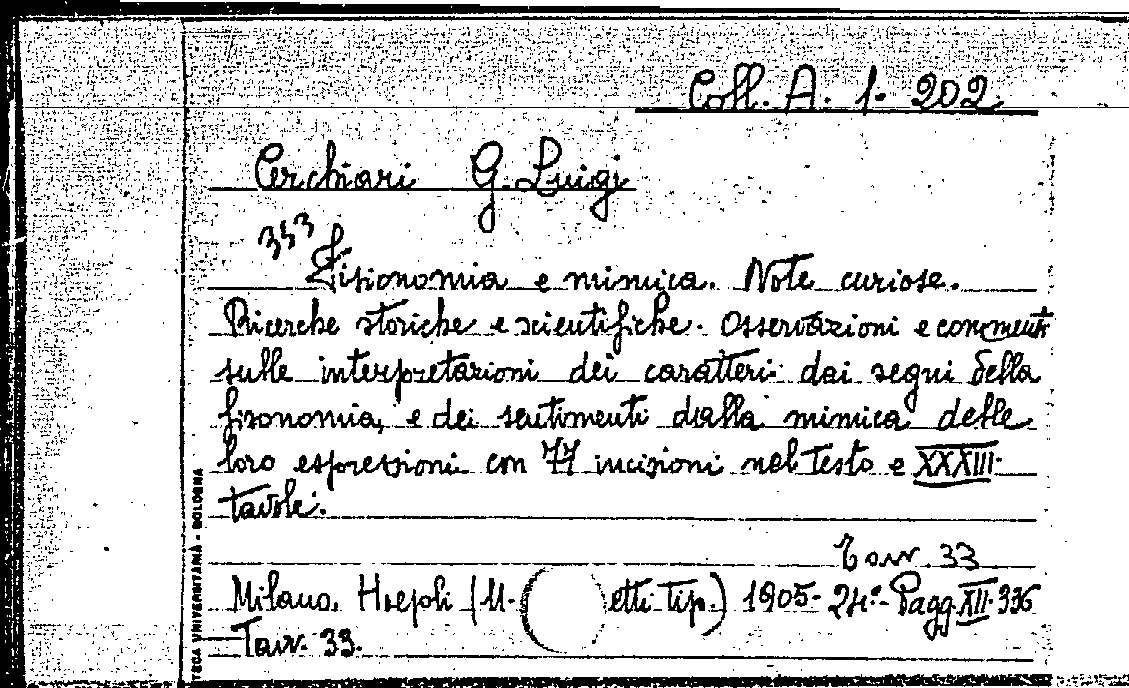 Coll. A. 1. 202
Cerchiari G. Luigi
353
Fisionomia e mimica. Note curiose.
Ricerche storiche e scientifiche. Osservazioni e commenti
sulle interpretazioni dei caratteri dai segni della
fisonomia, e dei sentimenti dalla mimica delle
loro espressioni con 77 incisioni nel testo e XXXIII
tavole.
Tav. 33
Milano, Hoepli (U. etti tip.) 1905 - 24° - Pagg. XII-336
Tav. 33.
TECA UNIVERSITARIA - BOLOGNA